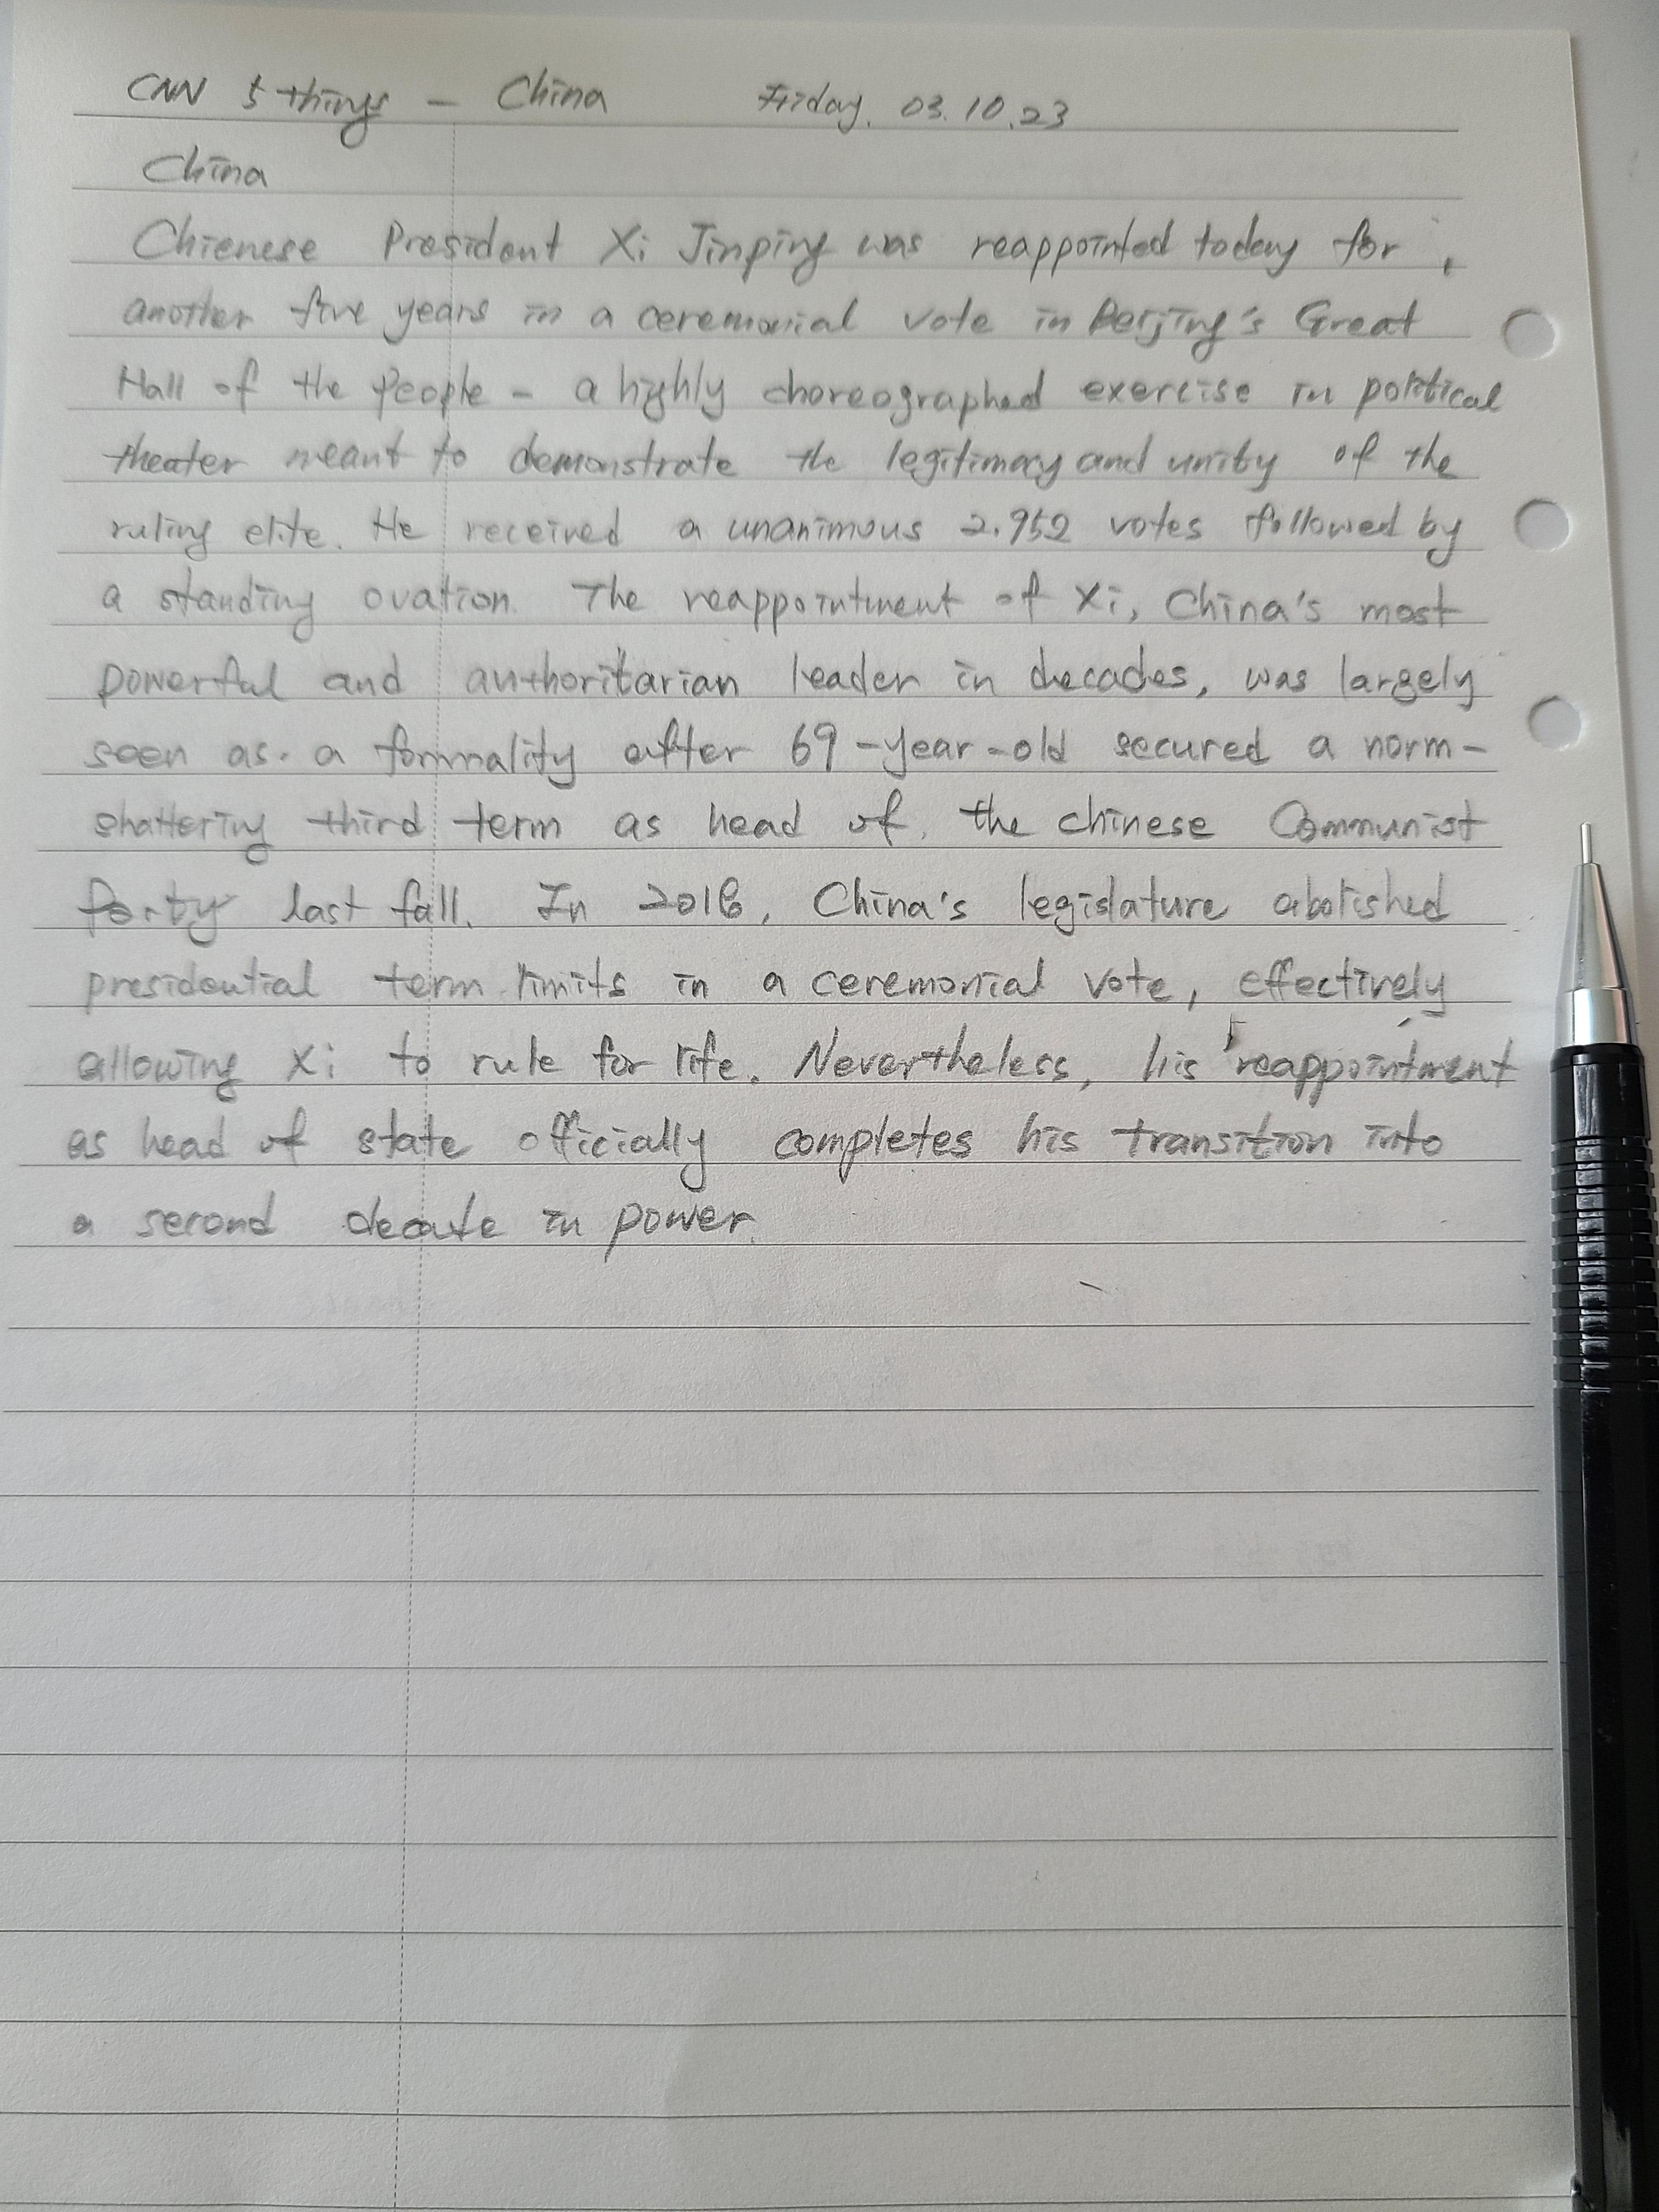 CNN 5 things - China Friday. 03.10.23
China
Chienese President Xi Jinping was reappointed today for
another five years in a ceremonial vote in Beijing's Great
Hall of the People - a highly choreographed exercise in political
theater meant to demonstrate the legitimacy and unity of the
ruling elite. He received a unanimous 2.952 votes followed by
a standing ovation. The reappointment of Xi, China's most
powerful and authoritarian leader in decades, was largely
seen as a formality after 69-year-old secured a norm-
shattering third term as head of the chinese Communist
Party last fall. In 2018, China's legislature abolished
presidential term limits in a ceremonial vote, effectively
allowing Xi to rule for life. Nevertheless, his reappointment
as head of state officially completes his transition into
a second decade in power.